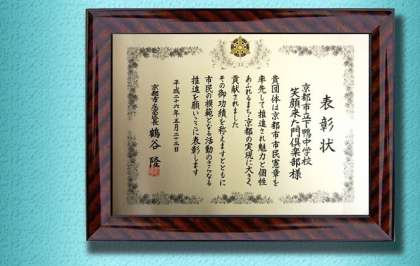 表彰状
京都市立下鴨中学校
笑顔来た門倶楽部様
貴団体は京都市市民憲章を
率先して推進され魅力と個性
あふれるまち京都の実現に大きく
貢献されました
その御功績を称えますとともに
市民の模範となる活動のさらなる
推進を願いここに表彰します
平成二十六年五月二十二日
鶴谷 隆